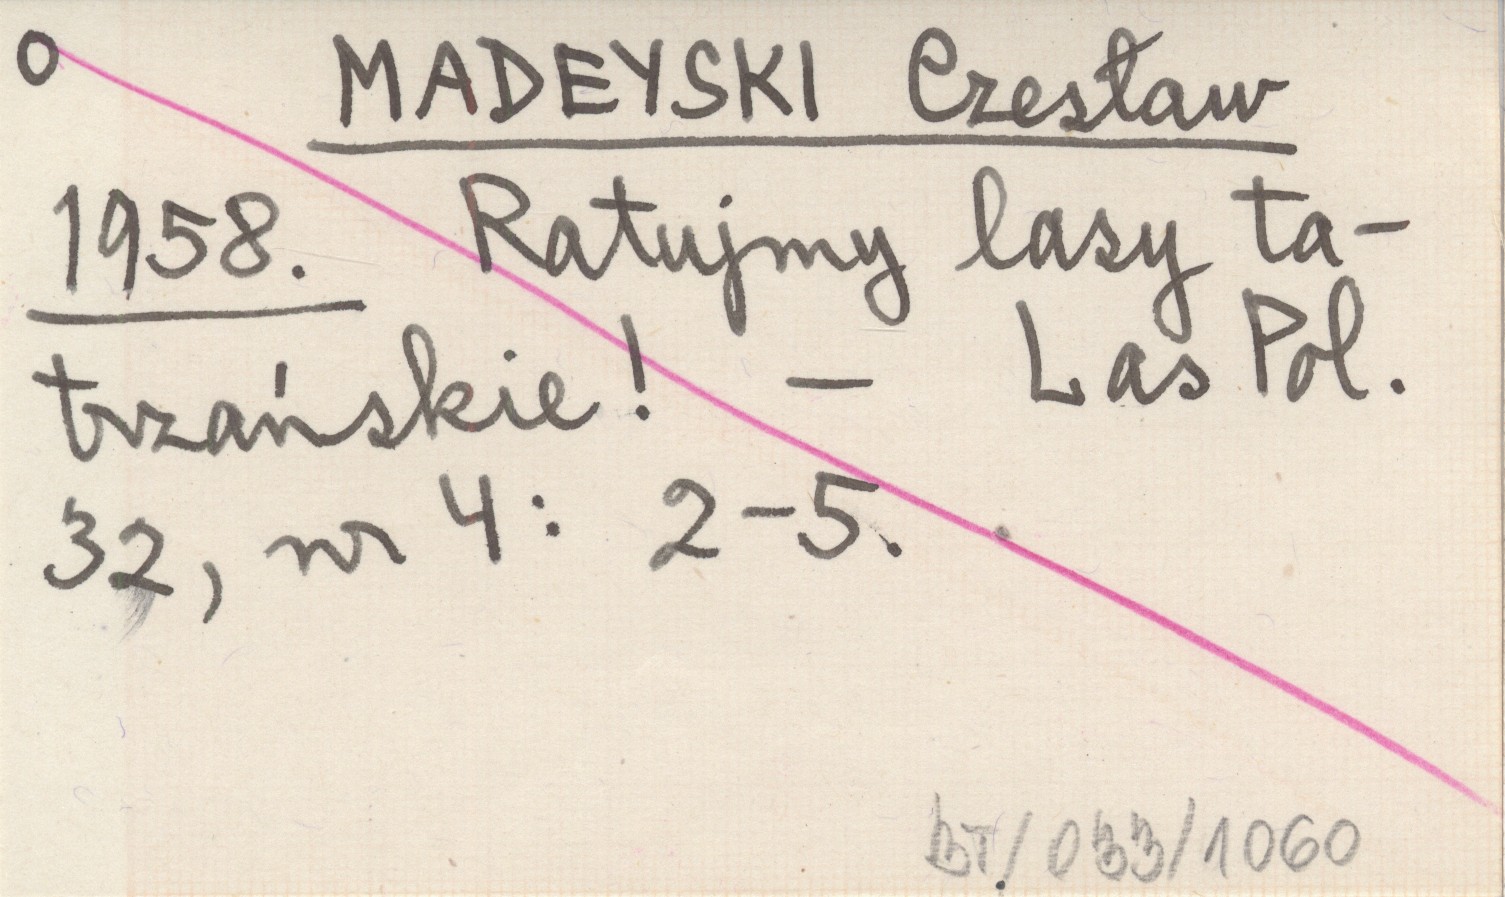 O MADEYSKI Czesław
1958. Ratujmy lasy ta-
trzańskie! — Las Pol.
32, nr 4: 2-5.
BT/033/1060